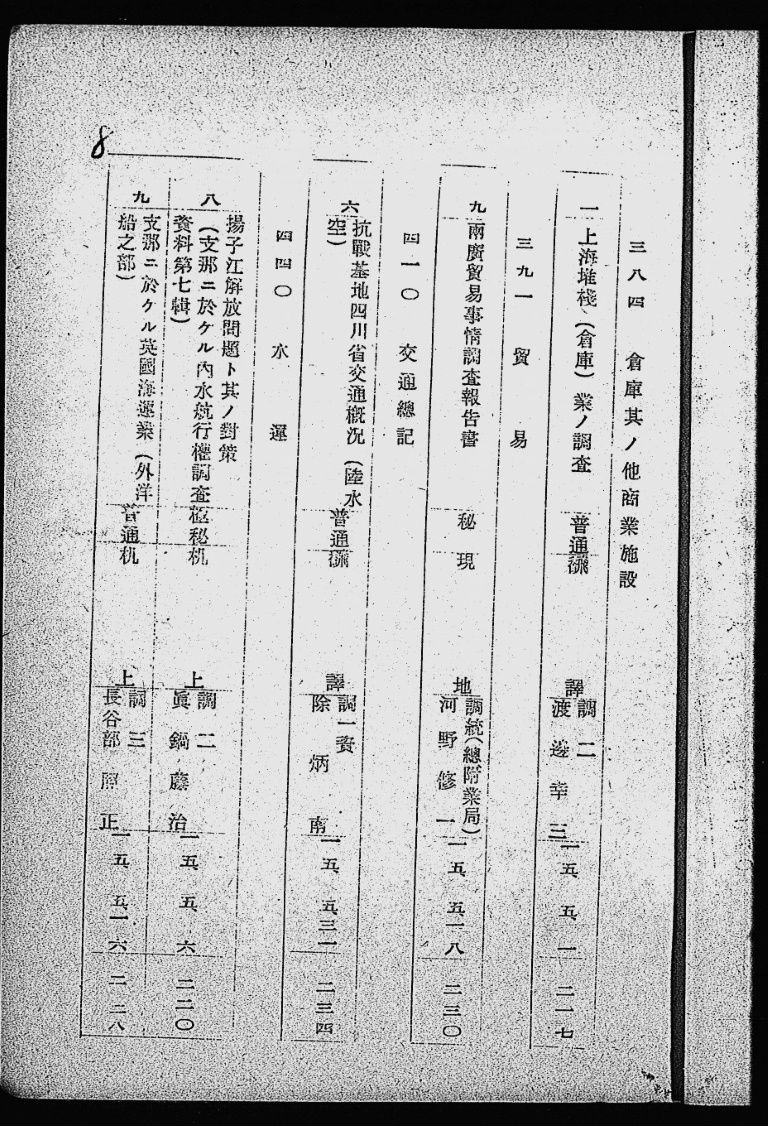 三八四 倉庫其ノ他商業施設
一 上海堆棧(倉庫)業ノ調査 普通 譯 調二 渡邊幸三 一五、五、一 二一七
三九一 貿易
九 兩廣貿易事情調査報告書 秘 現 地 調統(總附業局) 河野修一 一五、五、一八 二三〇
四一〇 交通總記
六 抗戰基地四川省交通概況(陸水
空) 普通 譯 調一資 除炳南 一五、五、三一 二三四
四四〇 水運
八 揚子江解放問題ト其ノ對策
(支那ニ於ケル內水航行權調査
資料第七輯) 極秘 机 上 調二 眞鍋藤治 一五、五、六 二二〇
九 支那ニ於ケル英國海運業(外洋
船之部) 普通 机 上 調三 長谷部照正 一五、五、一六 二二八
8